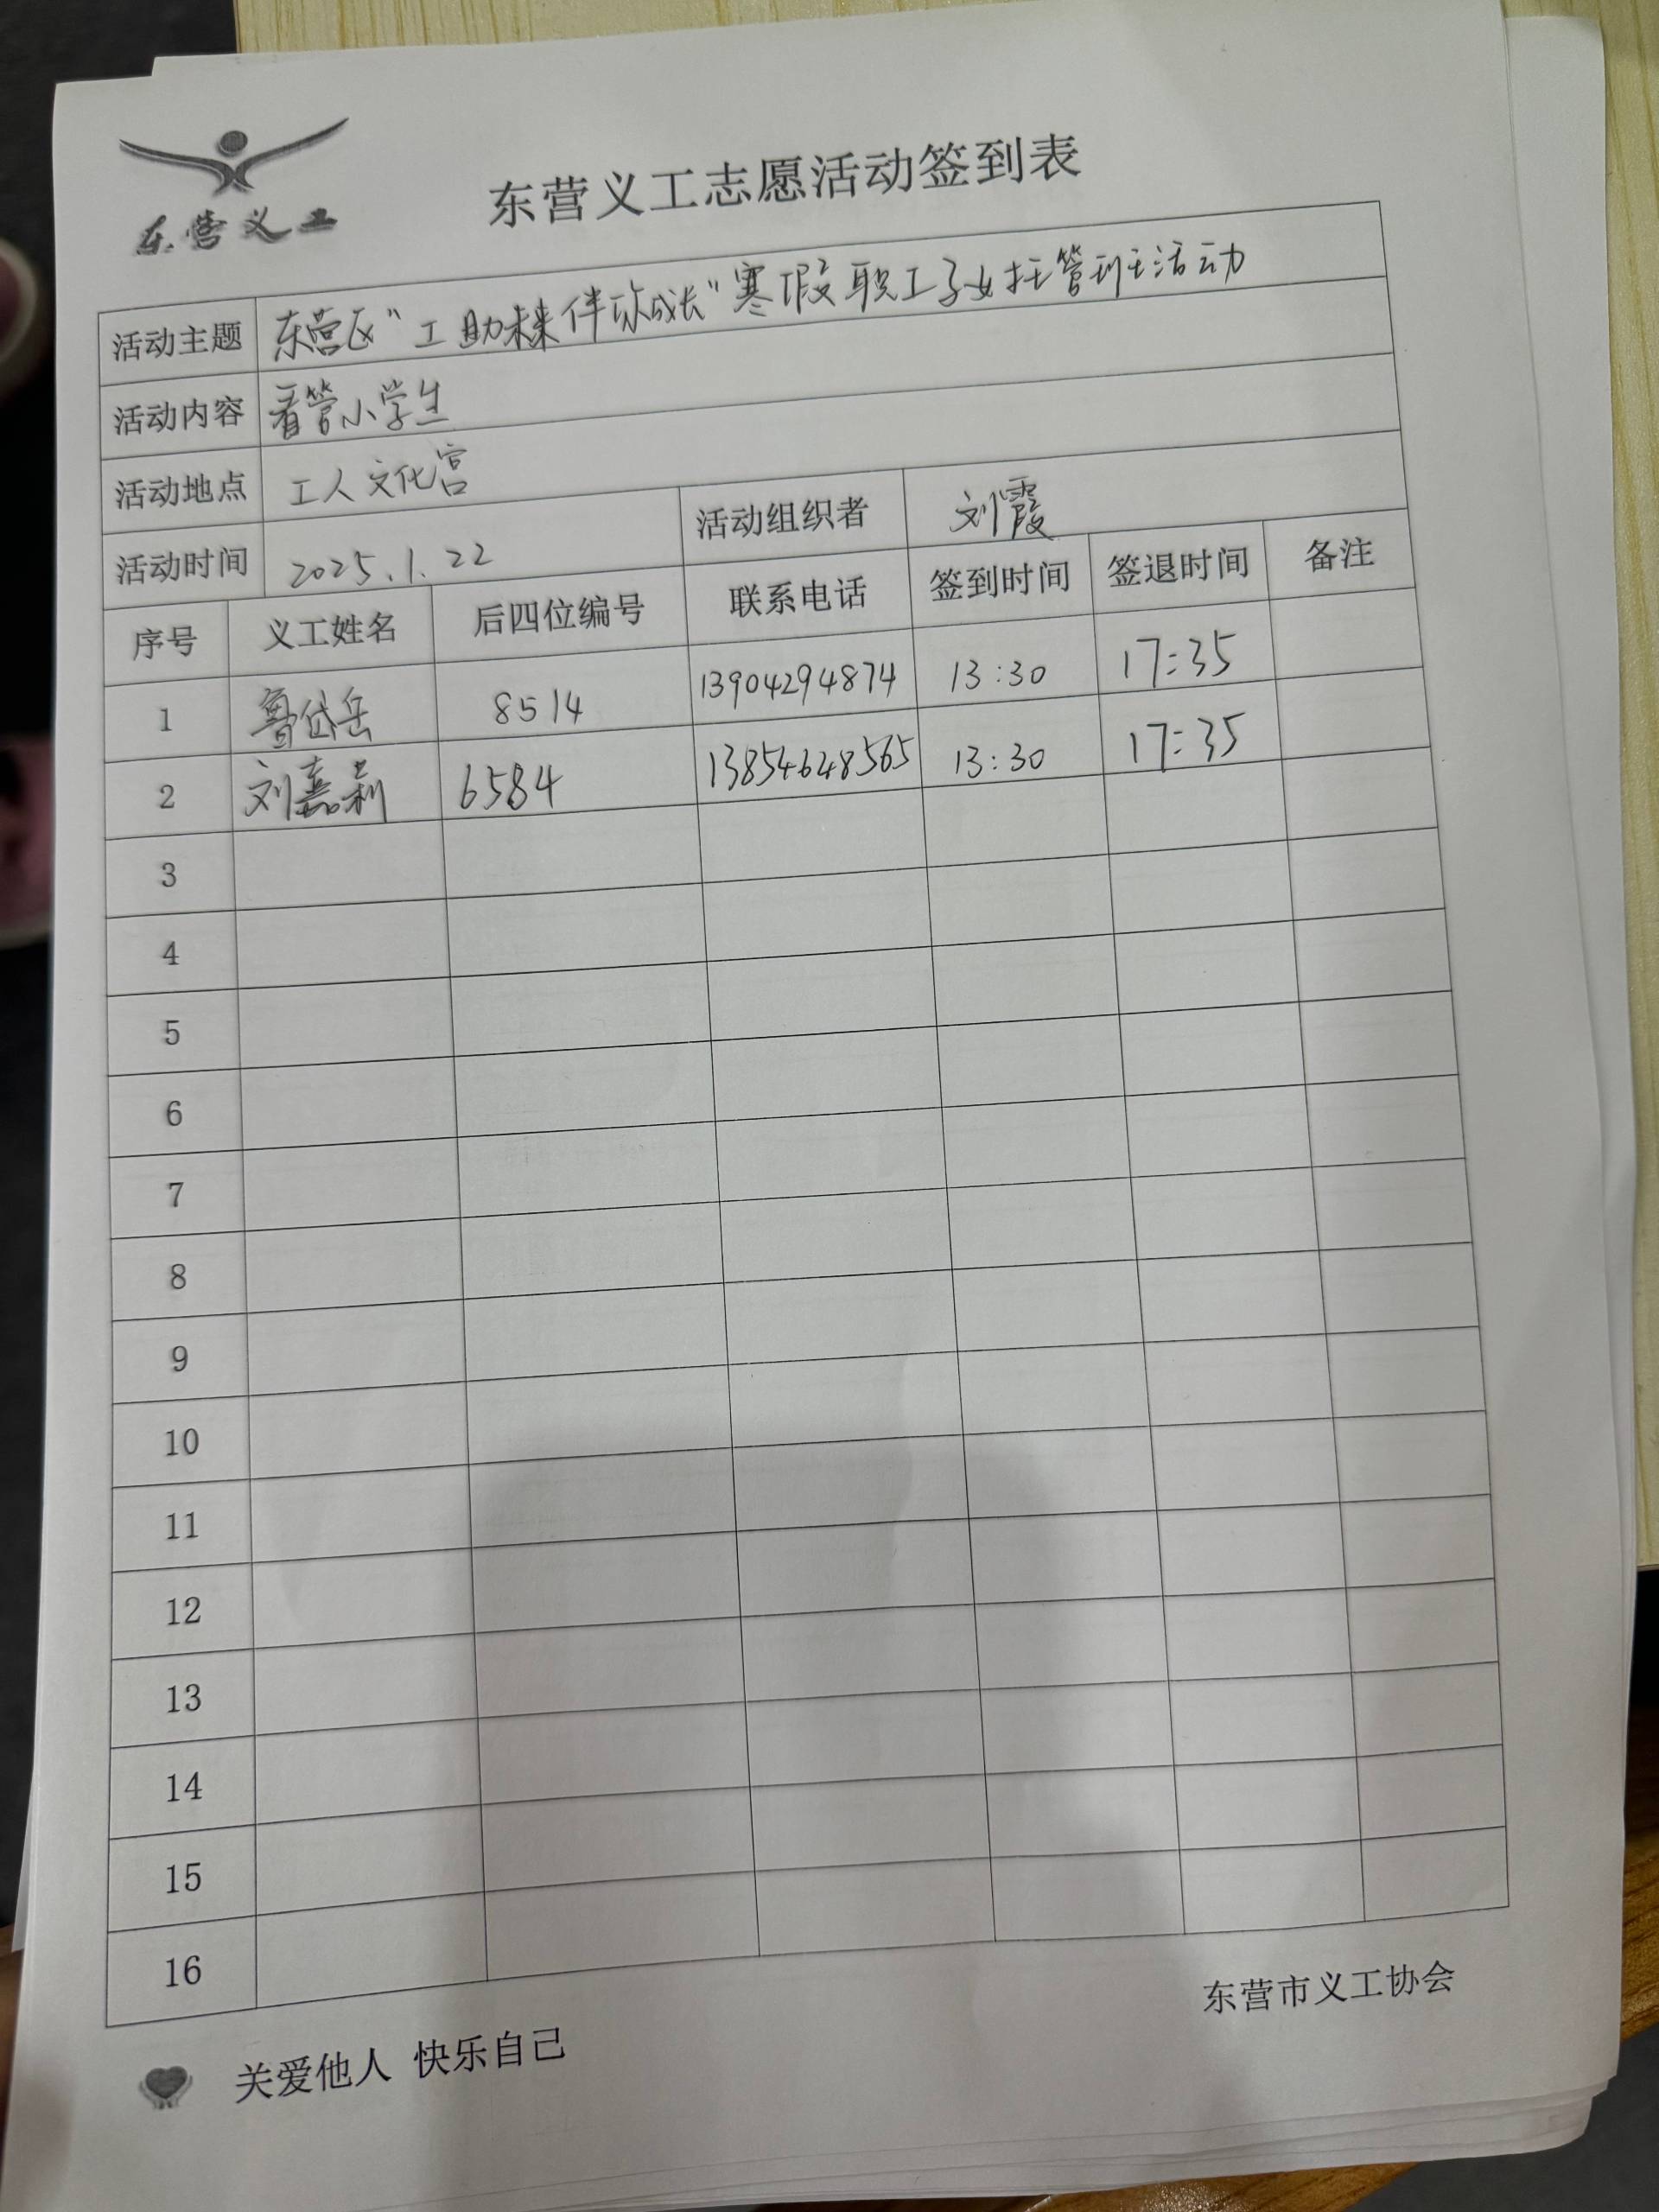 东营义工
东营义工志愿活动签到表
活动主题 东营区“工助未来伴你成长”寒假职工子女托管班活动
活动内容 看管小学生
活动地点 工人文化宫
活动时间 2025.1.22 活动组织者 刘霞
序号 义工姓名 后四位编号 联系电话 签到时间 签退时间 备注
1 鲁岱岳 8514 13904294874 13:30 17:35
2 刘嘉莉 6584 13854648565 13:30 17:35
3
4
5
6
7
8
9
10
11
12
13
14
15
16
东营市义工协会
关爱他人 快乐自己